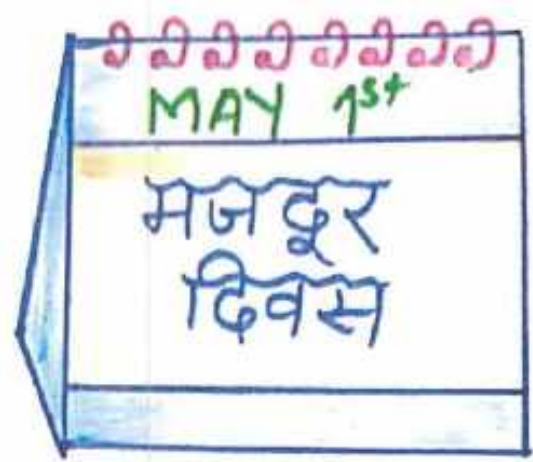 MAY 1st
मजदूर
दिवस